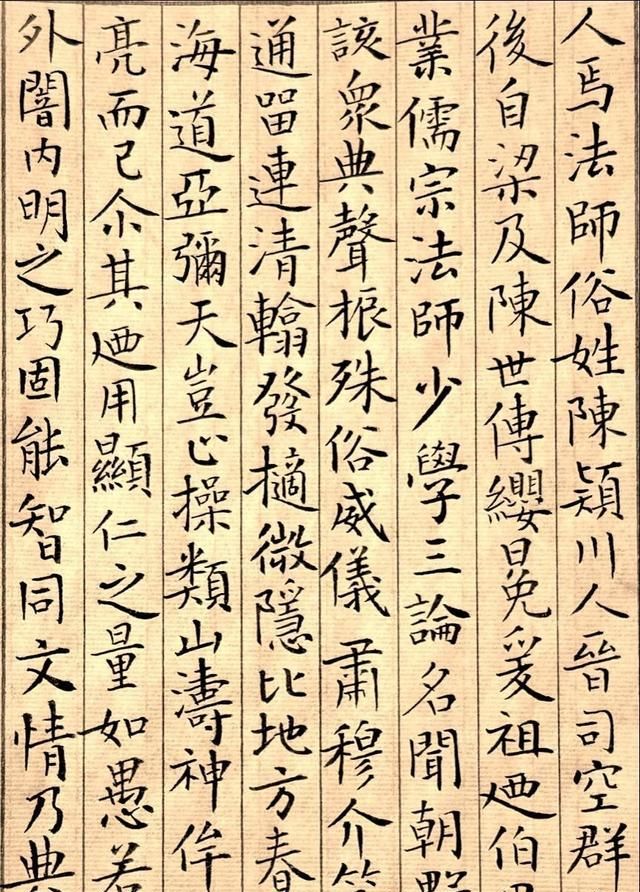 人焉法師俗姓陳潁川人晉司空群
後自梁及陳世傳纓冕爰祖廼伯
業儒宗法師少學三論名聞朝野
該眾典聲振殊俗威儀肅穆介
通留連清翰發擿微隱比地方春
海道亞彌天豈止操類山濤神侔
亮而已尒其廼用顯仁之量如愚若
外闇內明之巧固能智同文情乃典